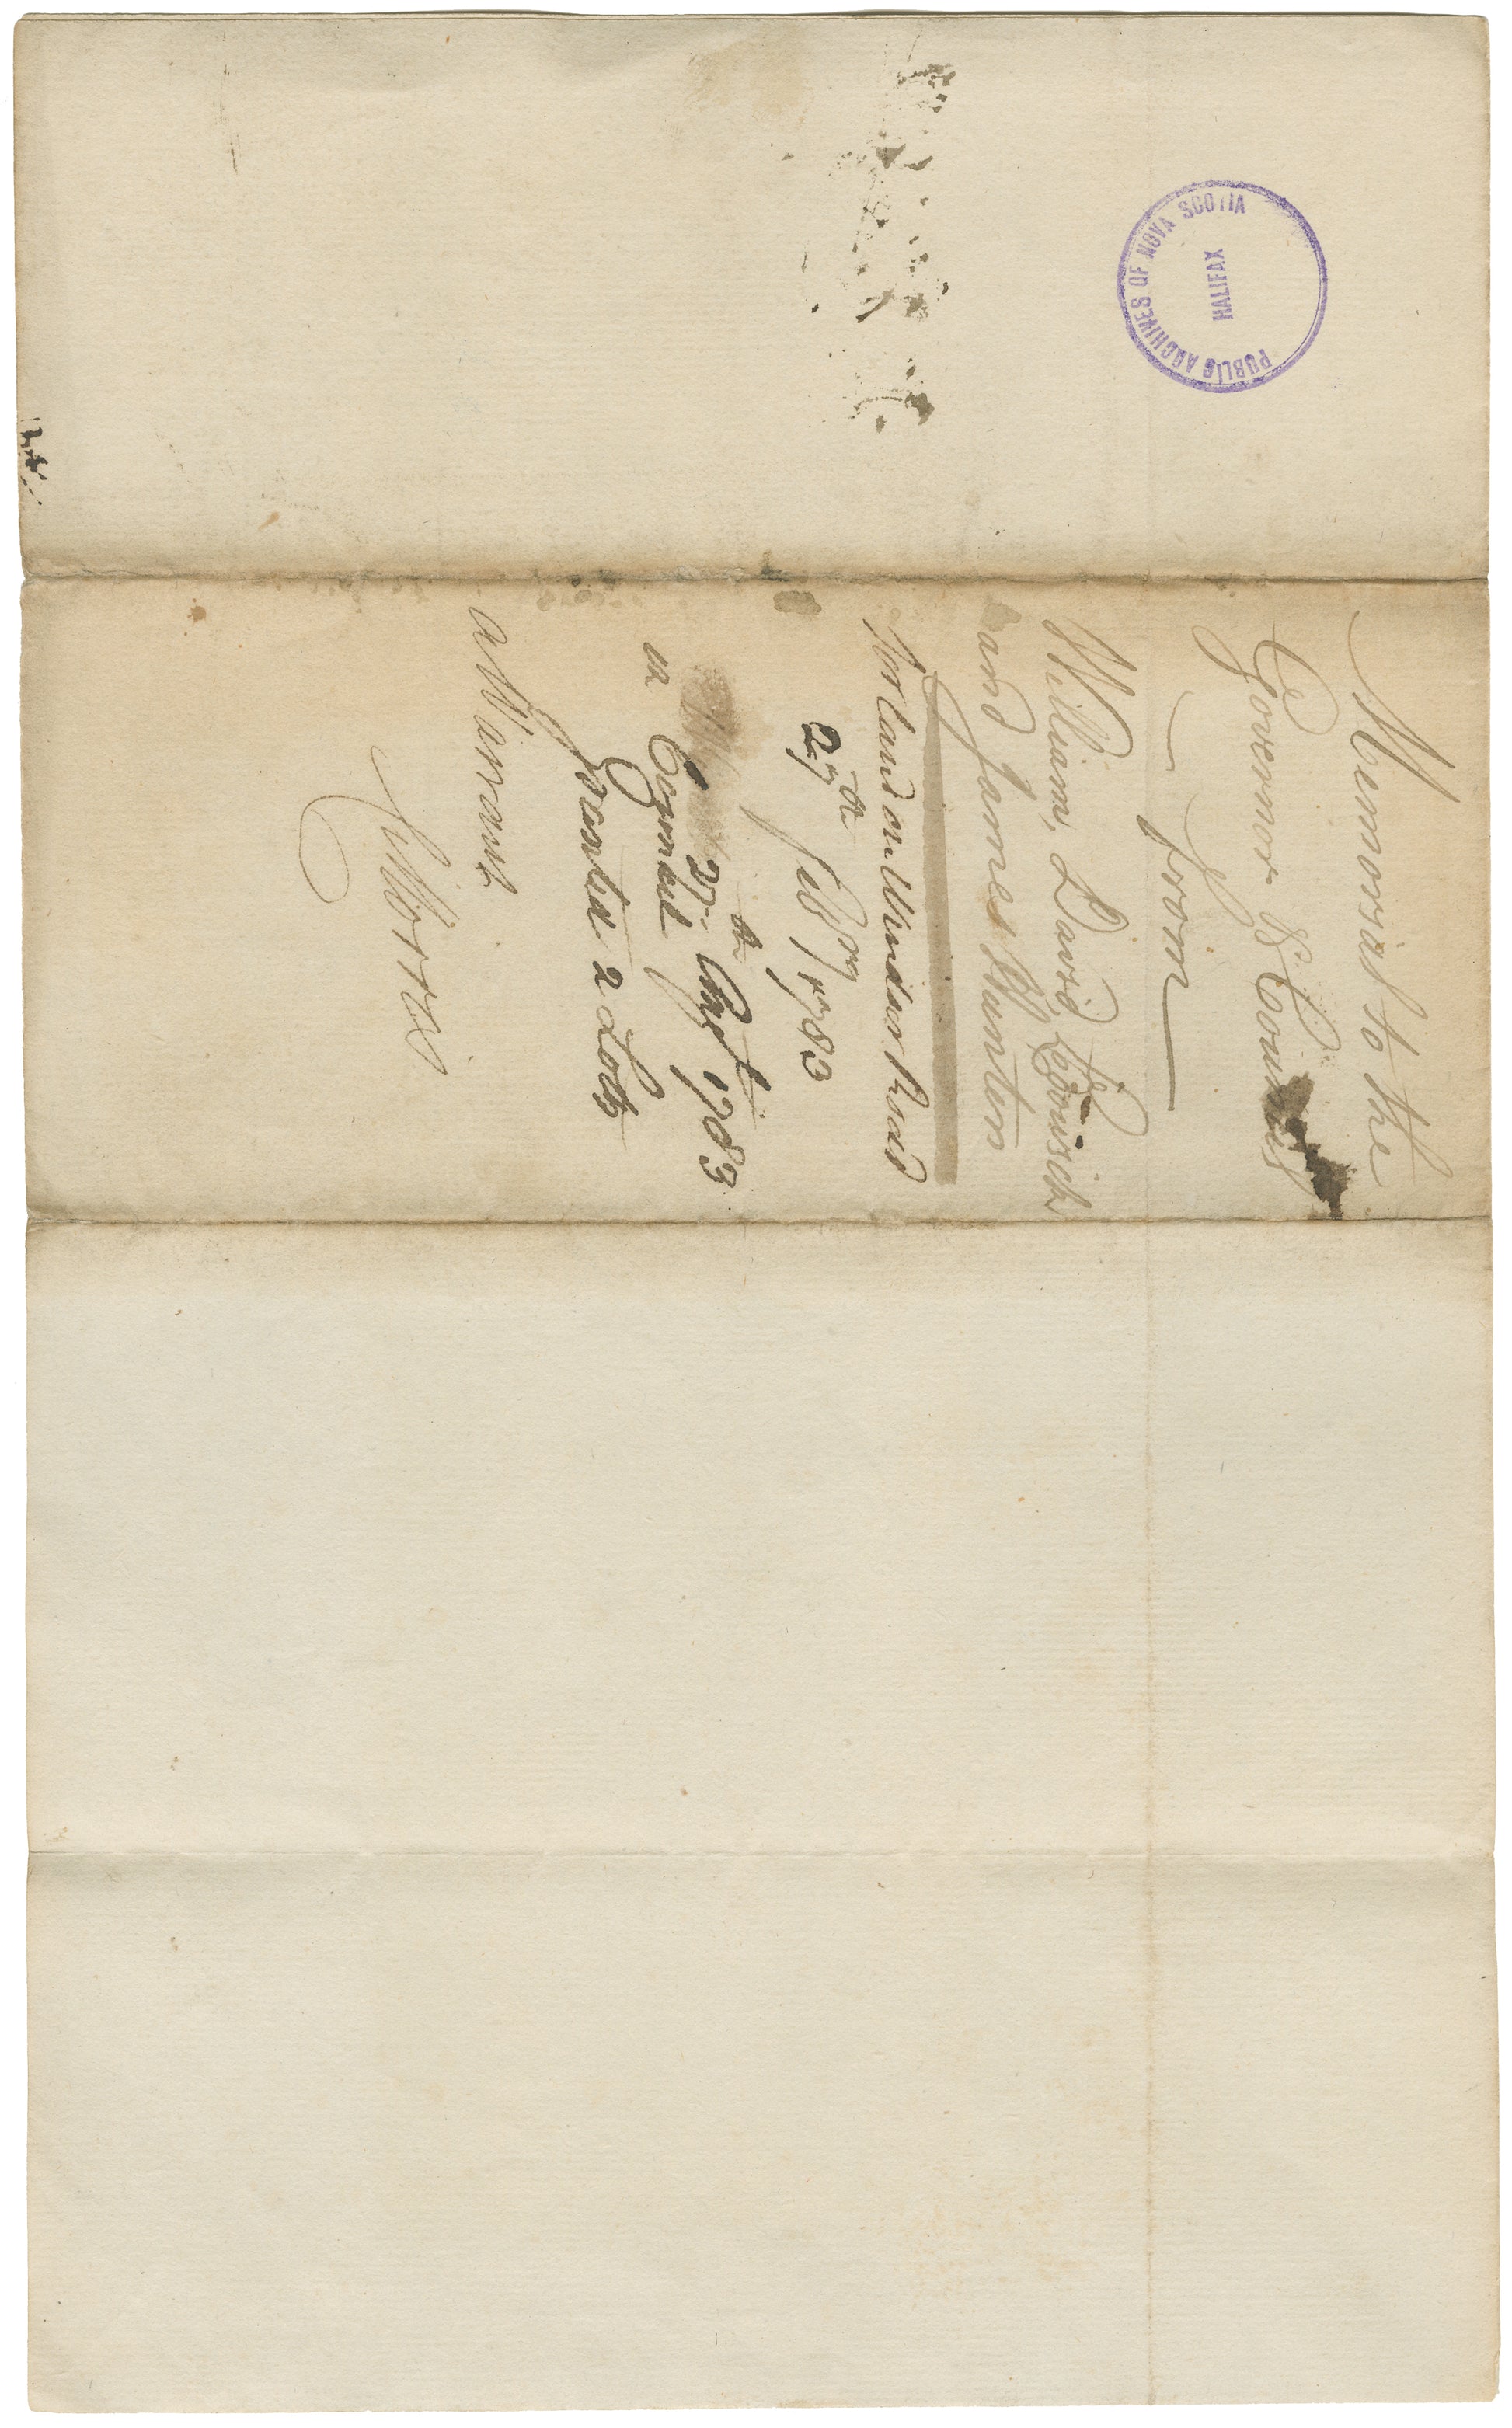 PUBLIC ARCHIVES OF NOVA SCOTIA
HALIFAX
Memorial to the
Governor & Council
from
William, David,
and James Hunter
for Land on Windsor Road
27th Feb'ry 1783
27th Augt 1783
in Council
Granted 2 Lots
a Warrant